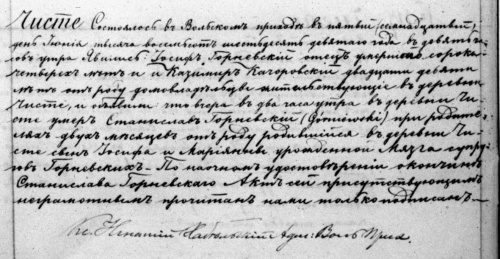 Чисте Состоялось въ Вольскомъ приходѣ въ пятый (семнадцатый)
день Іюня тысяча восемьсотъ шестьдесятъ девятаго года въ девять ча-
совъ утра. Явились: Іосифъ Горневскій отецъ умершаго сорока
четырехъ лѣтъ и Казимиръ Кагоровскій двадцати девяти
лѣтъ отъ роду домовладѣльцы жительствующіе въ деревни
Чисте, и объявили что вчера въ два часа утра въ деревни Чи-
сте умеръ Станиславъ Горневскій (Gorniewski) при родите-
ляхъ двухъ мѣсяцевъ отъ роду родившійся въ деревни Чи-
сте сынъ Іосифа и Маріянны урожденной Мязга супру-
говъ Горневскихъ — По наочномъ удостовѣреніи о кончинѣ
Станислава Горневскаго Актъ сей присутствующимъ
неграмотнымъ прочитанъ нами только подписанъ —
Кс. Игнатій Адм: Воль Прих.